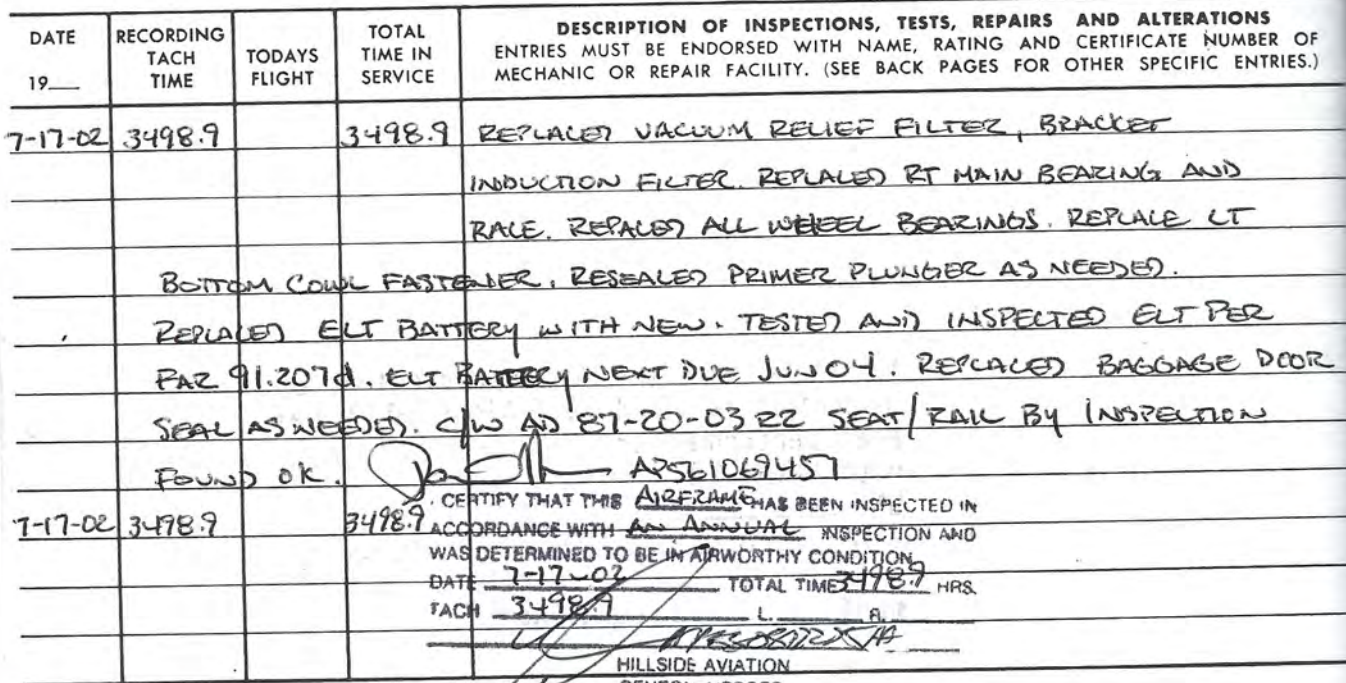 DATE RECORDING TODAYS TOTAL DESCRIPTION OF INSPECTIONS, TESTS, REPAIRS AND ALTERATIONS
TACH FLIGHT TIME IN ENTRIES MUST BE ENDORSED WITH NAME, RATING AND CERTIFICATE NUMBER OF
19__ TIME SERVICE MECHANIC OR REPAIR FACILITY. (SEE BACK PAGES FOR OTHER SPECIFIC ENTRIES.)
7-17-02 3498.9 3498.9 REPLACED VACUUM RELIEF FILTER, BRACKET
INDUCTION FILTER. REPLACED RT MAIN BEARING AND
RACE. REPACED ALL WHEEL BEARINGS. REPLACE LT
BOTTOM COWL FASTENER. RESEALED PRIMER PLUNGER AS NEEDED.
REPLACED ELT BATTERY WITH NEW. TESTED AND INSPECTED ELT PER
FAR 91.207d. ELT BATTERY NEXT DUE JUN 04. REPLACED BAGGAGE DOOR
SEAL AS NEEDED. C/W AD 87-20-03 R2 SEAT/RAIL BY INSPECTION
FOUND OK. AP561069457
CERTIFY THAT THIS AIRFRAME HAS BEEN INSPECTED IN
7-17-02 3498.9 3498.9 ACCORDANCE WITH AN ANNUAL INSPECTION AND
WAS DETERMINED TO BE IN AIRWORTHY CONDITION
DATE 7-17-02 TOTAL TIME 3498.9 HRS.
TACH 3498.9
HILLSIDE AVIATION